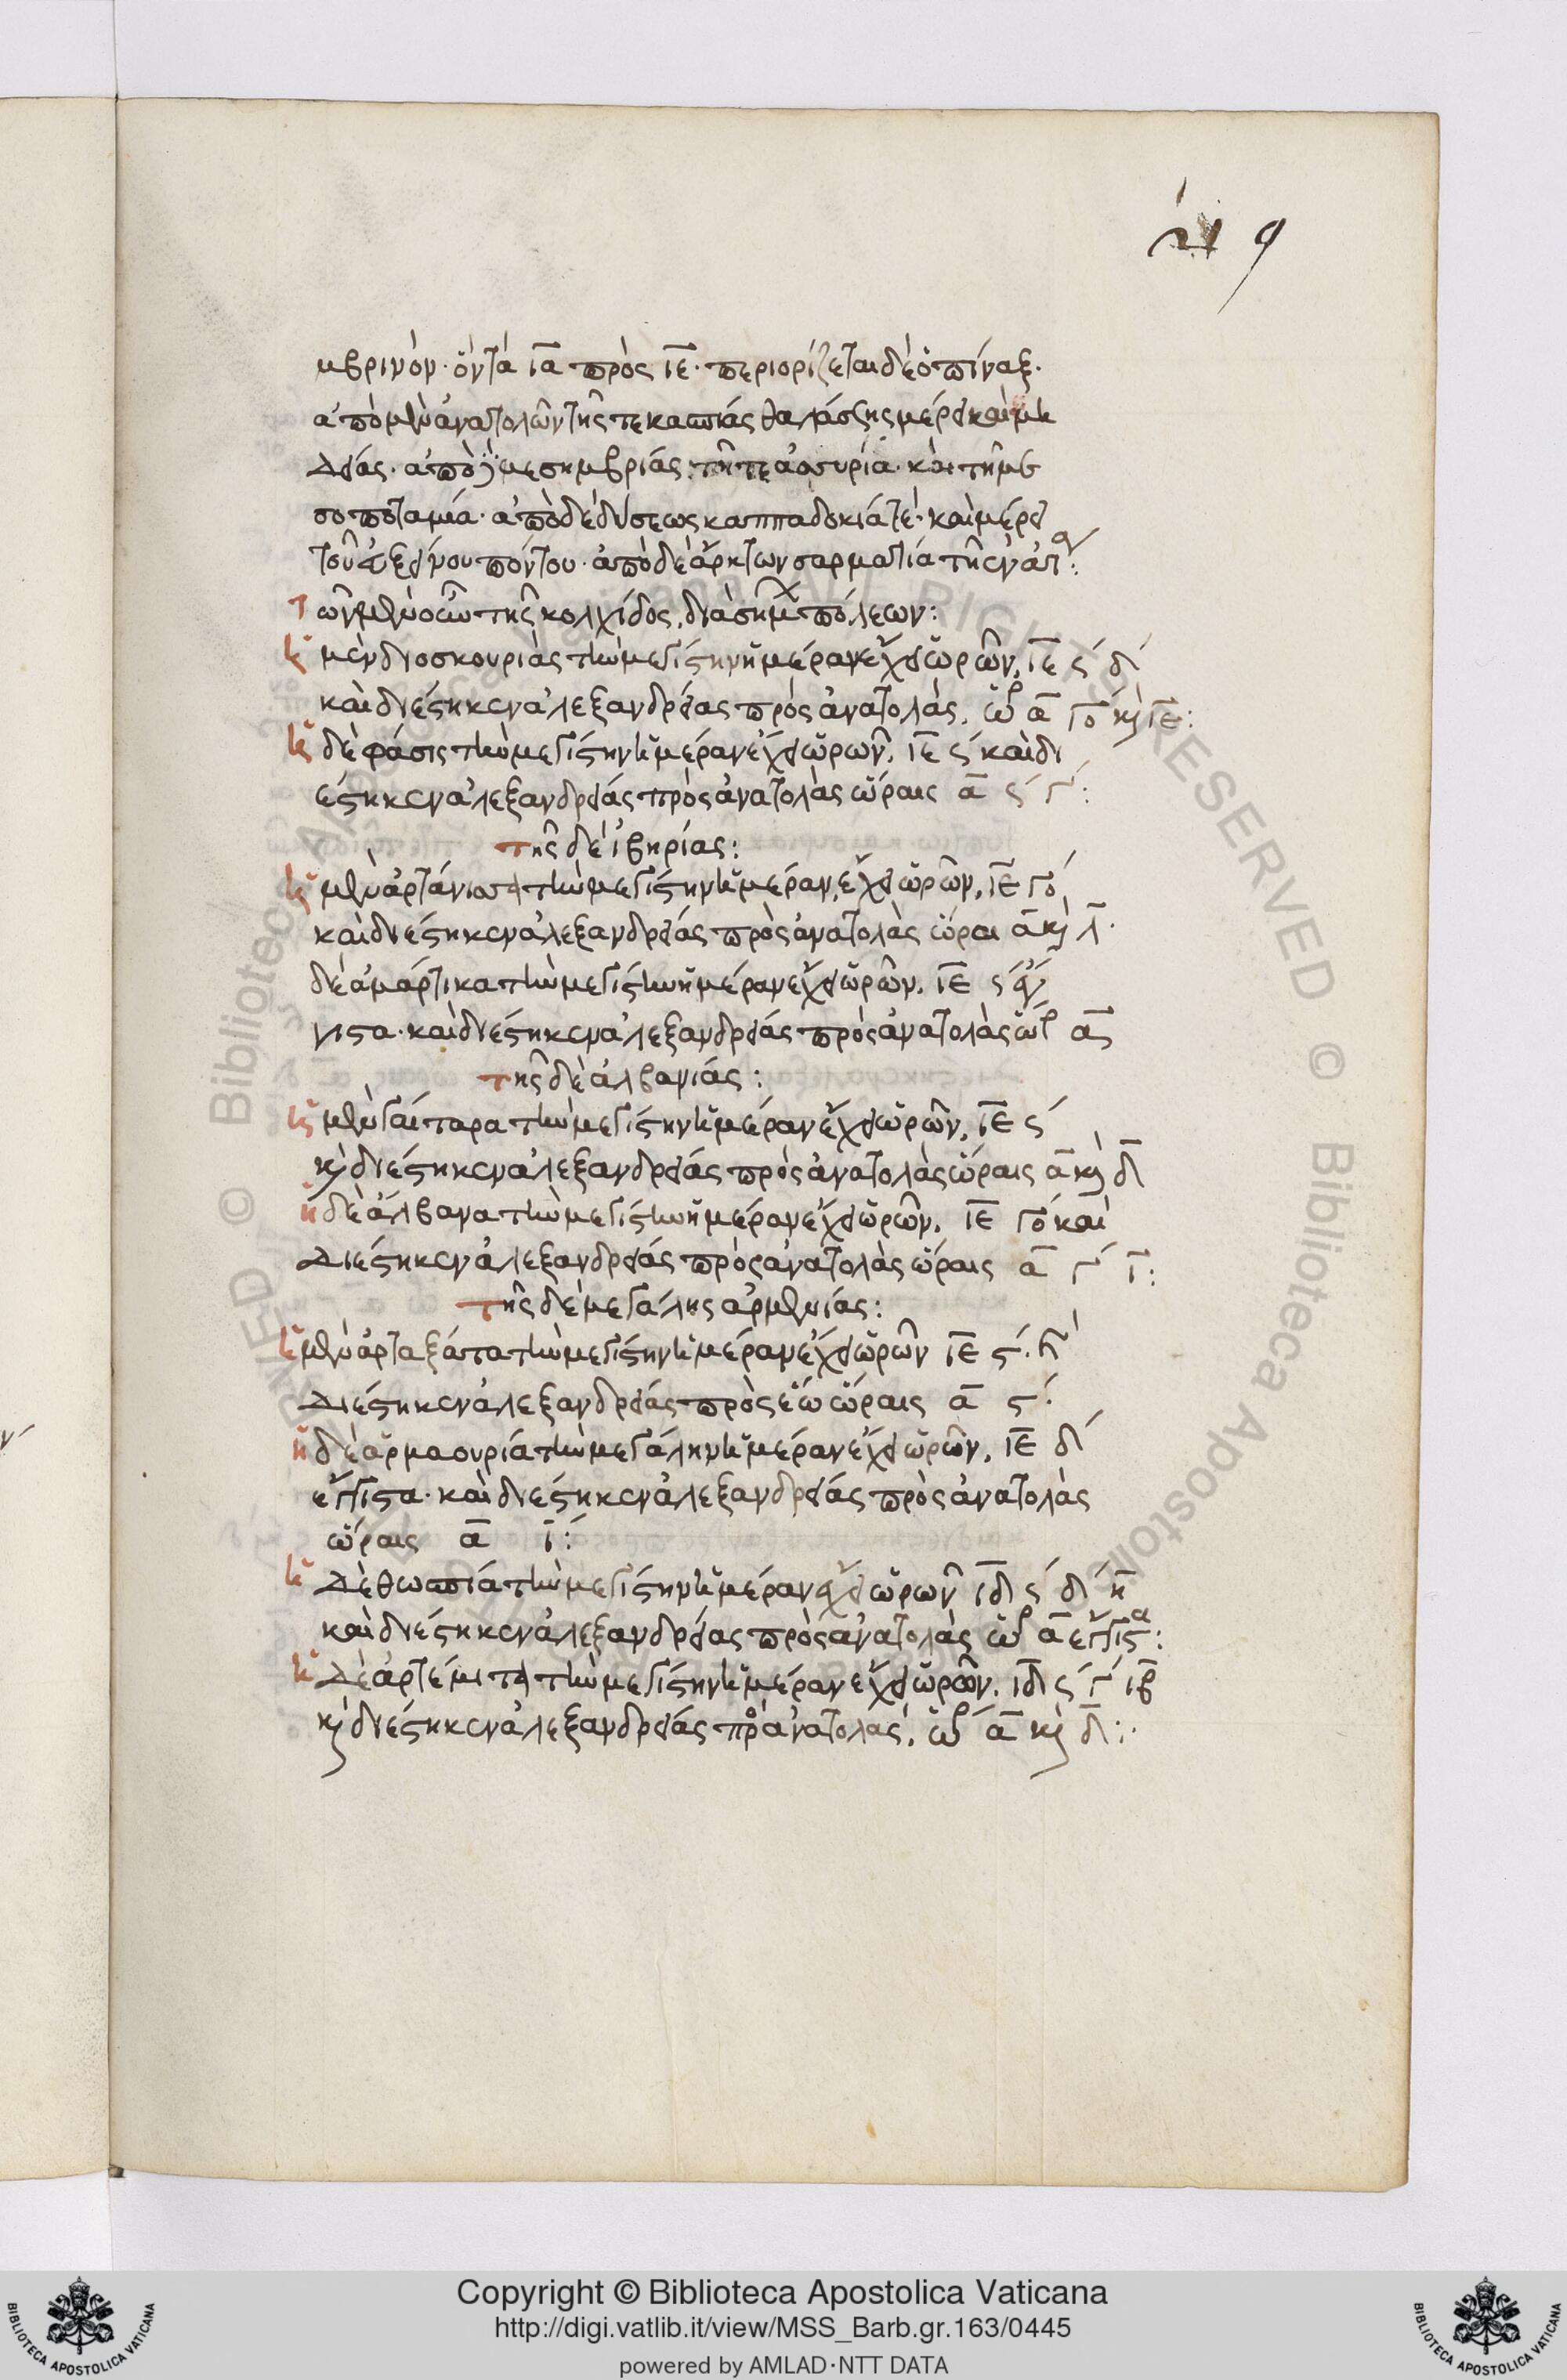 219
μβρινὸν· ὄντα ια πρὸς ιε· περιορίζεται δὲ ὁ πίναξ·
ἀπὸ μὲν ἀνατολῶν τῆς τε κασπίας θαλάσσης μέρει καὶ μη
δείας· ἀπὸ μεσημβρίας τῆ τε ἀσσυρία· καὶ τῆ με
σοποταμία· ἀπὸ δὲ δύσεως καππαδοκία τὲ· καὶ μέρει
τοῦ εὐξείνου πόντου· ἀπὸ δὲ ἄρκτων σαρματία τῆ ἐν ἀσ:
τῶν μὲν οὖν τῆς κολχίδος, διασήμ πόλεων:
ἡ μὲν διοσκουριὰς τὴν μεγίστην ἡμέραν ἔχει ὡρῶν, ιε ς δ
καὶ διέστηκεν ἀλεξανδρείας πρὸς ἀνατολὰς, ὥρ α γο κ ιε:
ἡ δὲ φάσις τὴν μεγίστην ἡμέραν ἔχει ὡρῶν, ιε ς καὶ δι
έστηκεν ἀλεξανδρείας πρὸς ἀνατολὰς ὥραις α ς γ:
τῆς δὲ ἰβηρίας:
ἡ μὲν ἀρτάνισσα τὴν μεγίστην ἡμέραν, ἔχει ὡρῶν, ιε γο
καὶ διέστηκεν ἀλεξανδρείας πρὸς ἀνατολὰς ὥραι α κ λ·
δὲ ἁμάρτικα τὴν μεγίστην ἡμέραν ἔχει ὡρῶν, ιε ς ἔγ
γιστα· καὶ διέστηκεν ἀλεξανδρείας πρὸς ἀνατολὰς ὥρ α
τῆς δὲ ἀλβανίας:
ἡ μὲν γαίταρα τὴν μεγίστην ἡμέραν ἔχει ὡρῶν, ιε ς
κ διέστηκεν ἀλεξανδρείας πρὸς ἀνατολὰς ὥραις α κ δ
ἡ δὲ ἄλβανα τὴν μεγίστην ἡμέραν ἔχει ὡρῶν, ιε γο καὶ
διέστηκεν ἀλεξανδρείας πρὸς ἀνατολὰς ὥραις α γ ι:
τῆς δὲ μεγάλης ἀρμενίας:
ἡ μὲν ἀρταξάτα τὴν μεγίστην ἡμέραν ἔχει ὡρῶν ιε ς· κ
διέστηκεν ἀλεξανδρείας πρὸς ἕω ὥραις α ς·
ἡ δὲ ἁρμαουρία τὴν μεγάλην ἡμέραν ἔχει ὡρῶν, ιε δ
ἔγγιστα· καὶ διέστηκεν ἀλεξανδρείας πρὸς ἀνατολὰς
ὥραις α ι:
ἡ δὲ θωσπία τὴν μεγίστην ἡμέραν ἔχει ὡρῶν ιδ ς δ κ
καὶ διέστηκεν ἀλεξανδρείας πρὸς ἀνατολὰς ὥρ α ἔγγιστα:
ἡ δὲ ἀρτέμιτα τὴν μεγίστην ἡμέραν ἔχει ὡρῶν, ιδ ς γ ιβ
κ διέστηκεν ἀλεξανδρείας πρὸ ἀνατολάς, ὥρ α κ δ:
Copyright © Biblioteca Apostolica Vaticana
http://digi.vatlib.it/view/MSS_Barb.gr.163/0445
powered by AMLAD·NTT DATA